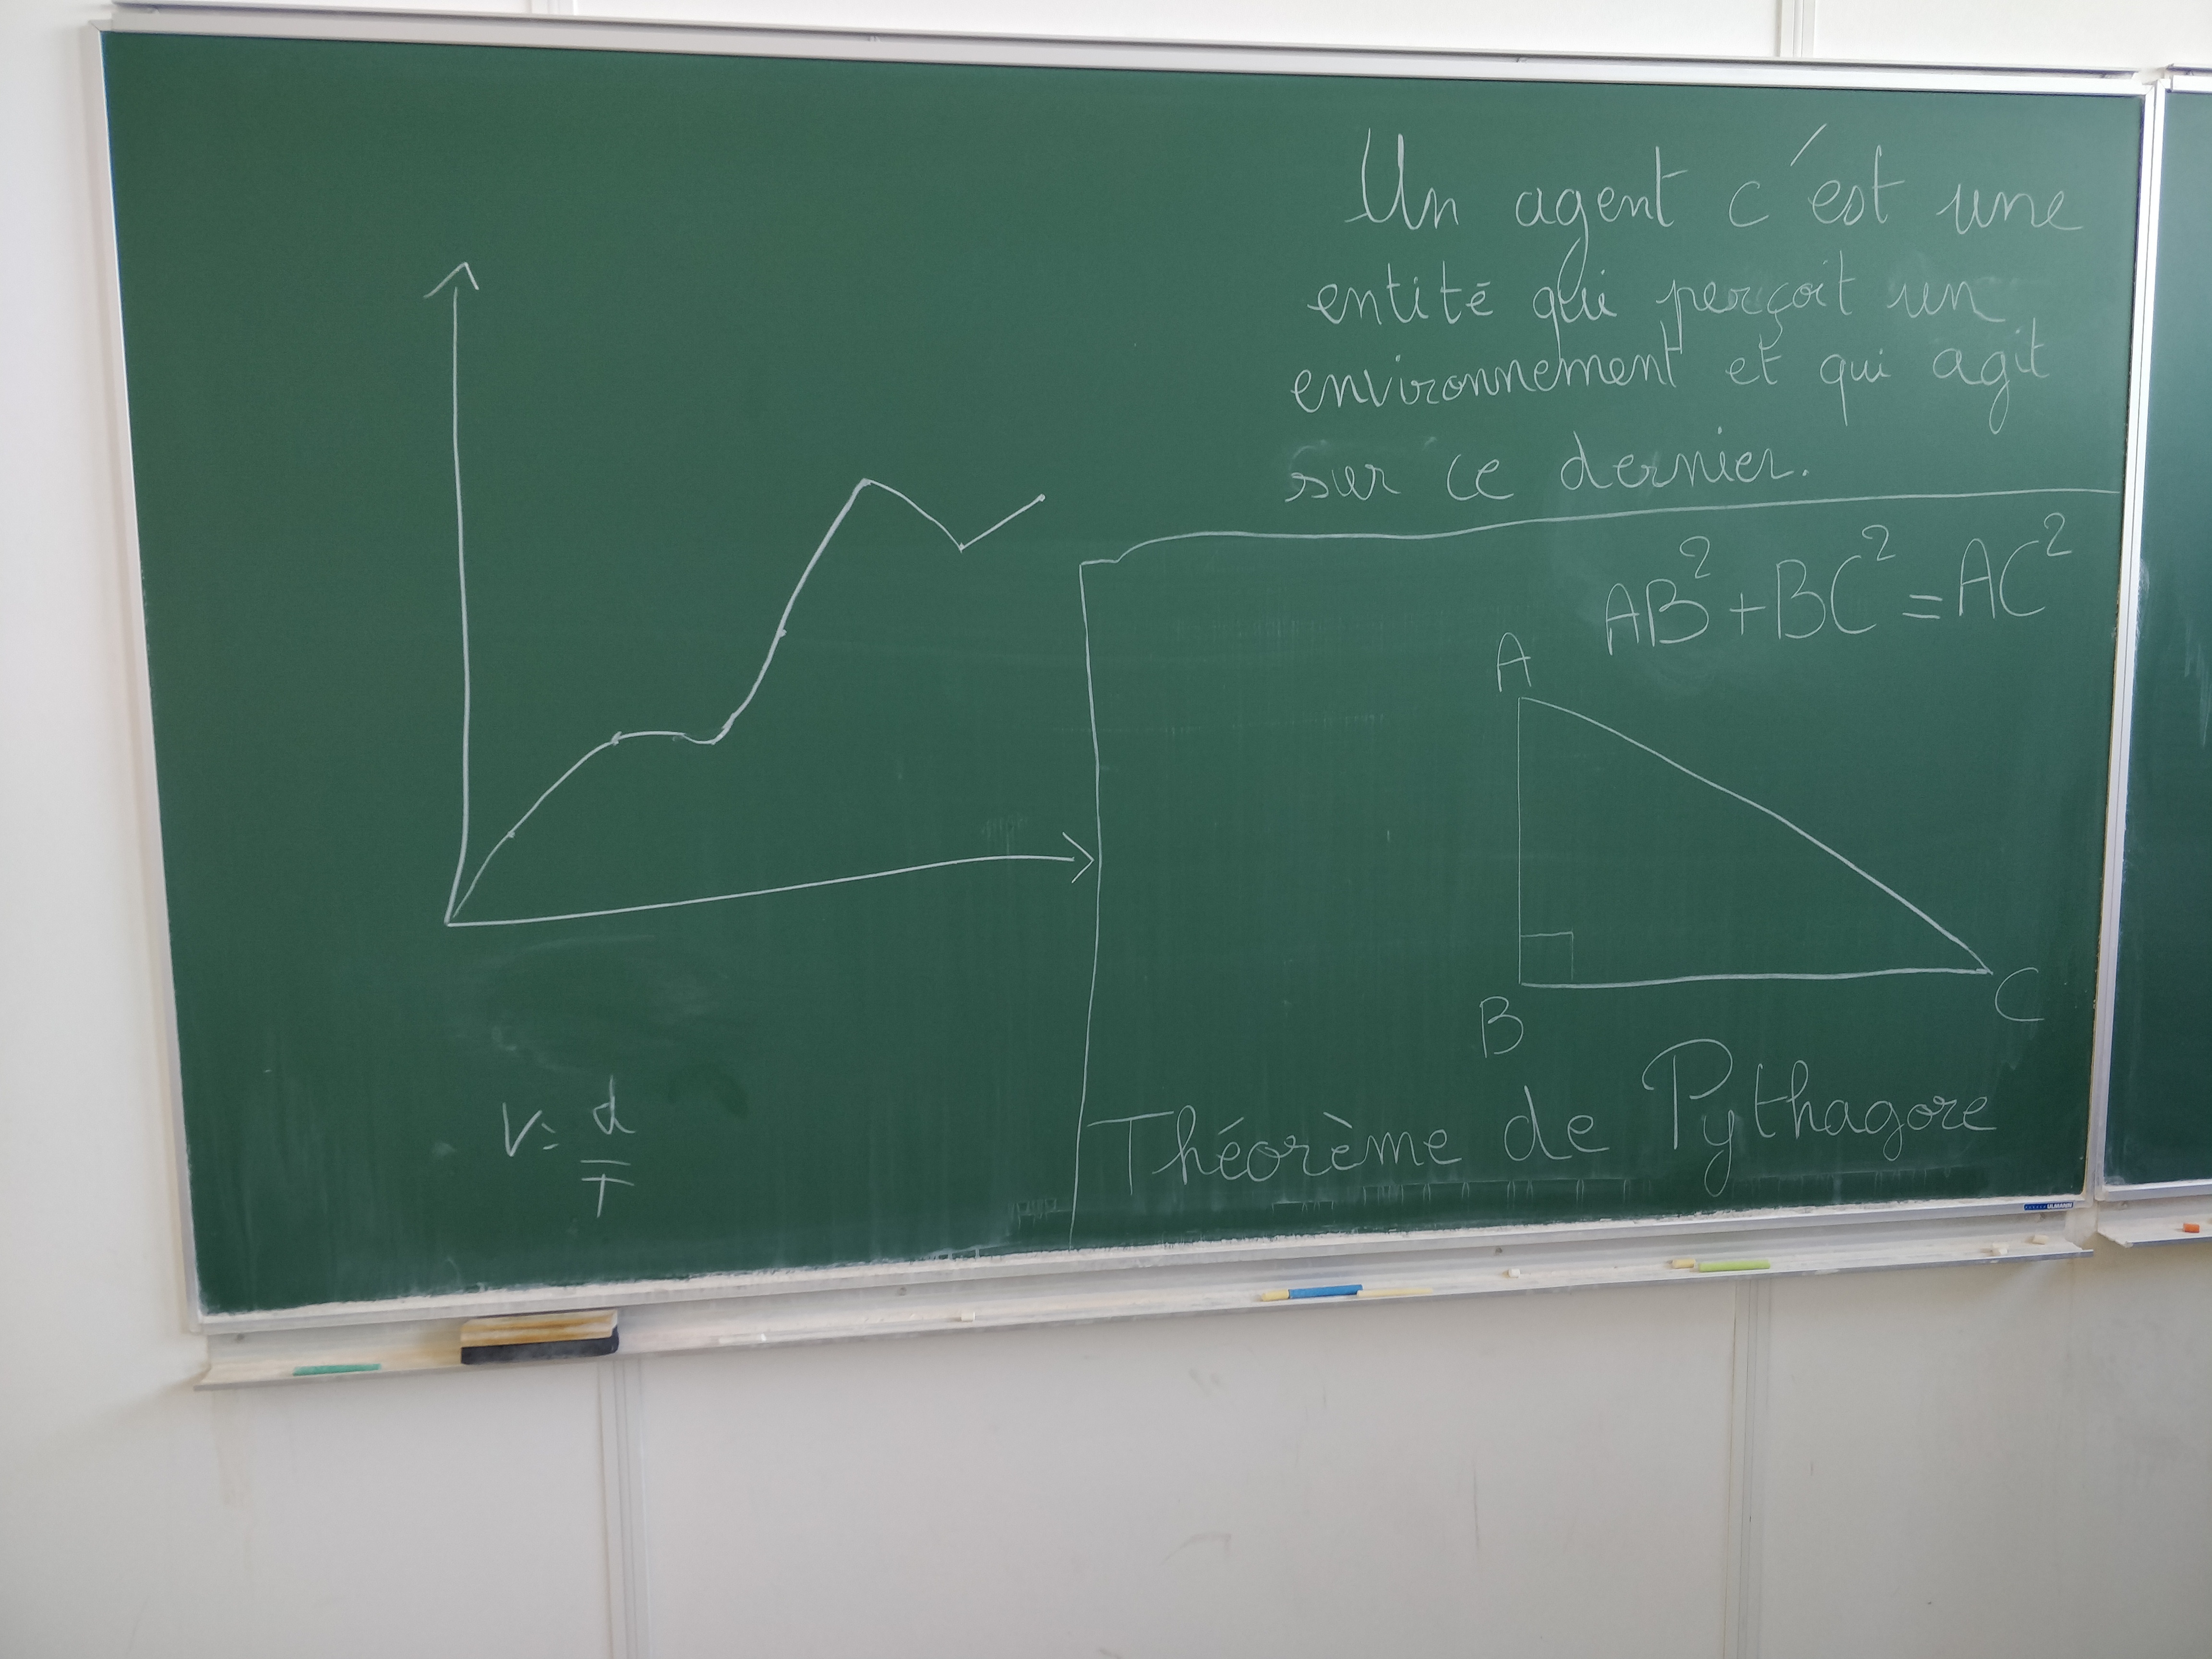 Un agent c'est une
entité qui perçoit un
environnement et qui agit
sur ce dernier.
AB² + BC² = AC²
A
B
C
Théorème de Pythagore
V = d
T
ULMANN